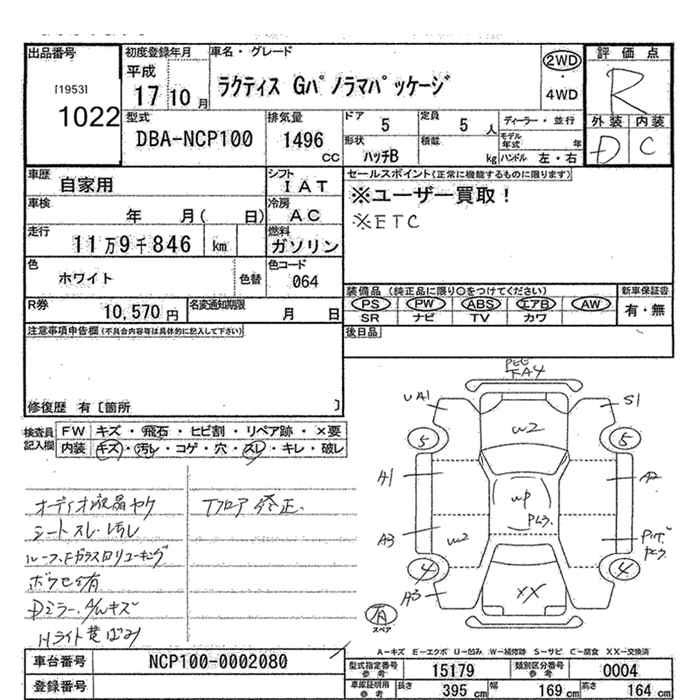 出品番号
[1953]
1022
初度登録年月
平成
17 10 月
車名・グレード
ラクティス Gパノラマパッケージ
2WD
・
4WD
評価点
R
外装 内装
D C
型式
DBA-NCP100
排気量
1496
CC
ドア 5
定員 5 人
形状 ハッチB
積載 kg
ディーラー・並行
モデル年式 年
ハンドル 左・右
車歴
自家用
シフト
IAT
車検
年 月( 日)
冷房
AC
走行
11万9千846 km
燃料
ガソリン
色
ホワイト
色替
色コード
064
R券
10,570 円
名変通知期限
月 日
セールスポイント(正常に機能するものに限ります)
※ユーザー買取!
※ETC
装備品 (純正品に限り○をつけてください)
PS PW ABS エアB AW
SR ナビ TV カワ
新車保証書
有・無
後日品
注意事項申告欄(不具合内容等は具体的に記入して下さい)
修復歴 有〔箇所 〕
検査員記入欄
FW キズ・飛石・ヒビ割・リペア跡・×要
内装 キズ・汚レ・コゲ・穴・スレ・キレ・破レ
オーディオ液晶ヤケ
シートスレ・汚レ
Tフロア修正
Dミラー
Hライト黄ばみ
UA1
S1
W2
5
5
A1
A2
WP
A3
W2
4
4
A3
XX
有
スペア
A-キズ E-エクボ U-凹み W-補修跡 S-サビ C-腐食 XX-交換済
車台番号
NCP100-0002080
登録番号
型式指定番号
15179
類別区分番号
0004
車庫証明用参考
長さ 395 cm
幅 169 cm
高さ 164 cm